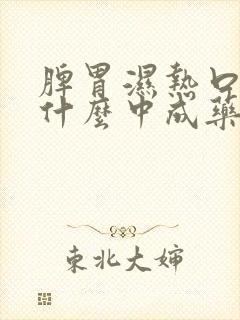 脾胃濕熱口
什麼中成藥
東北大嬸